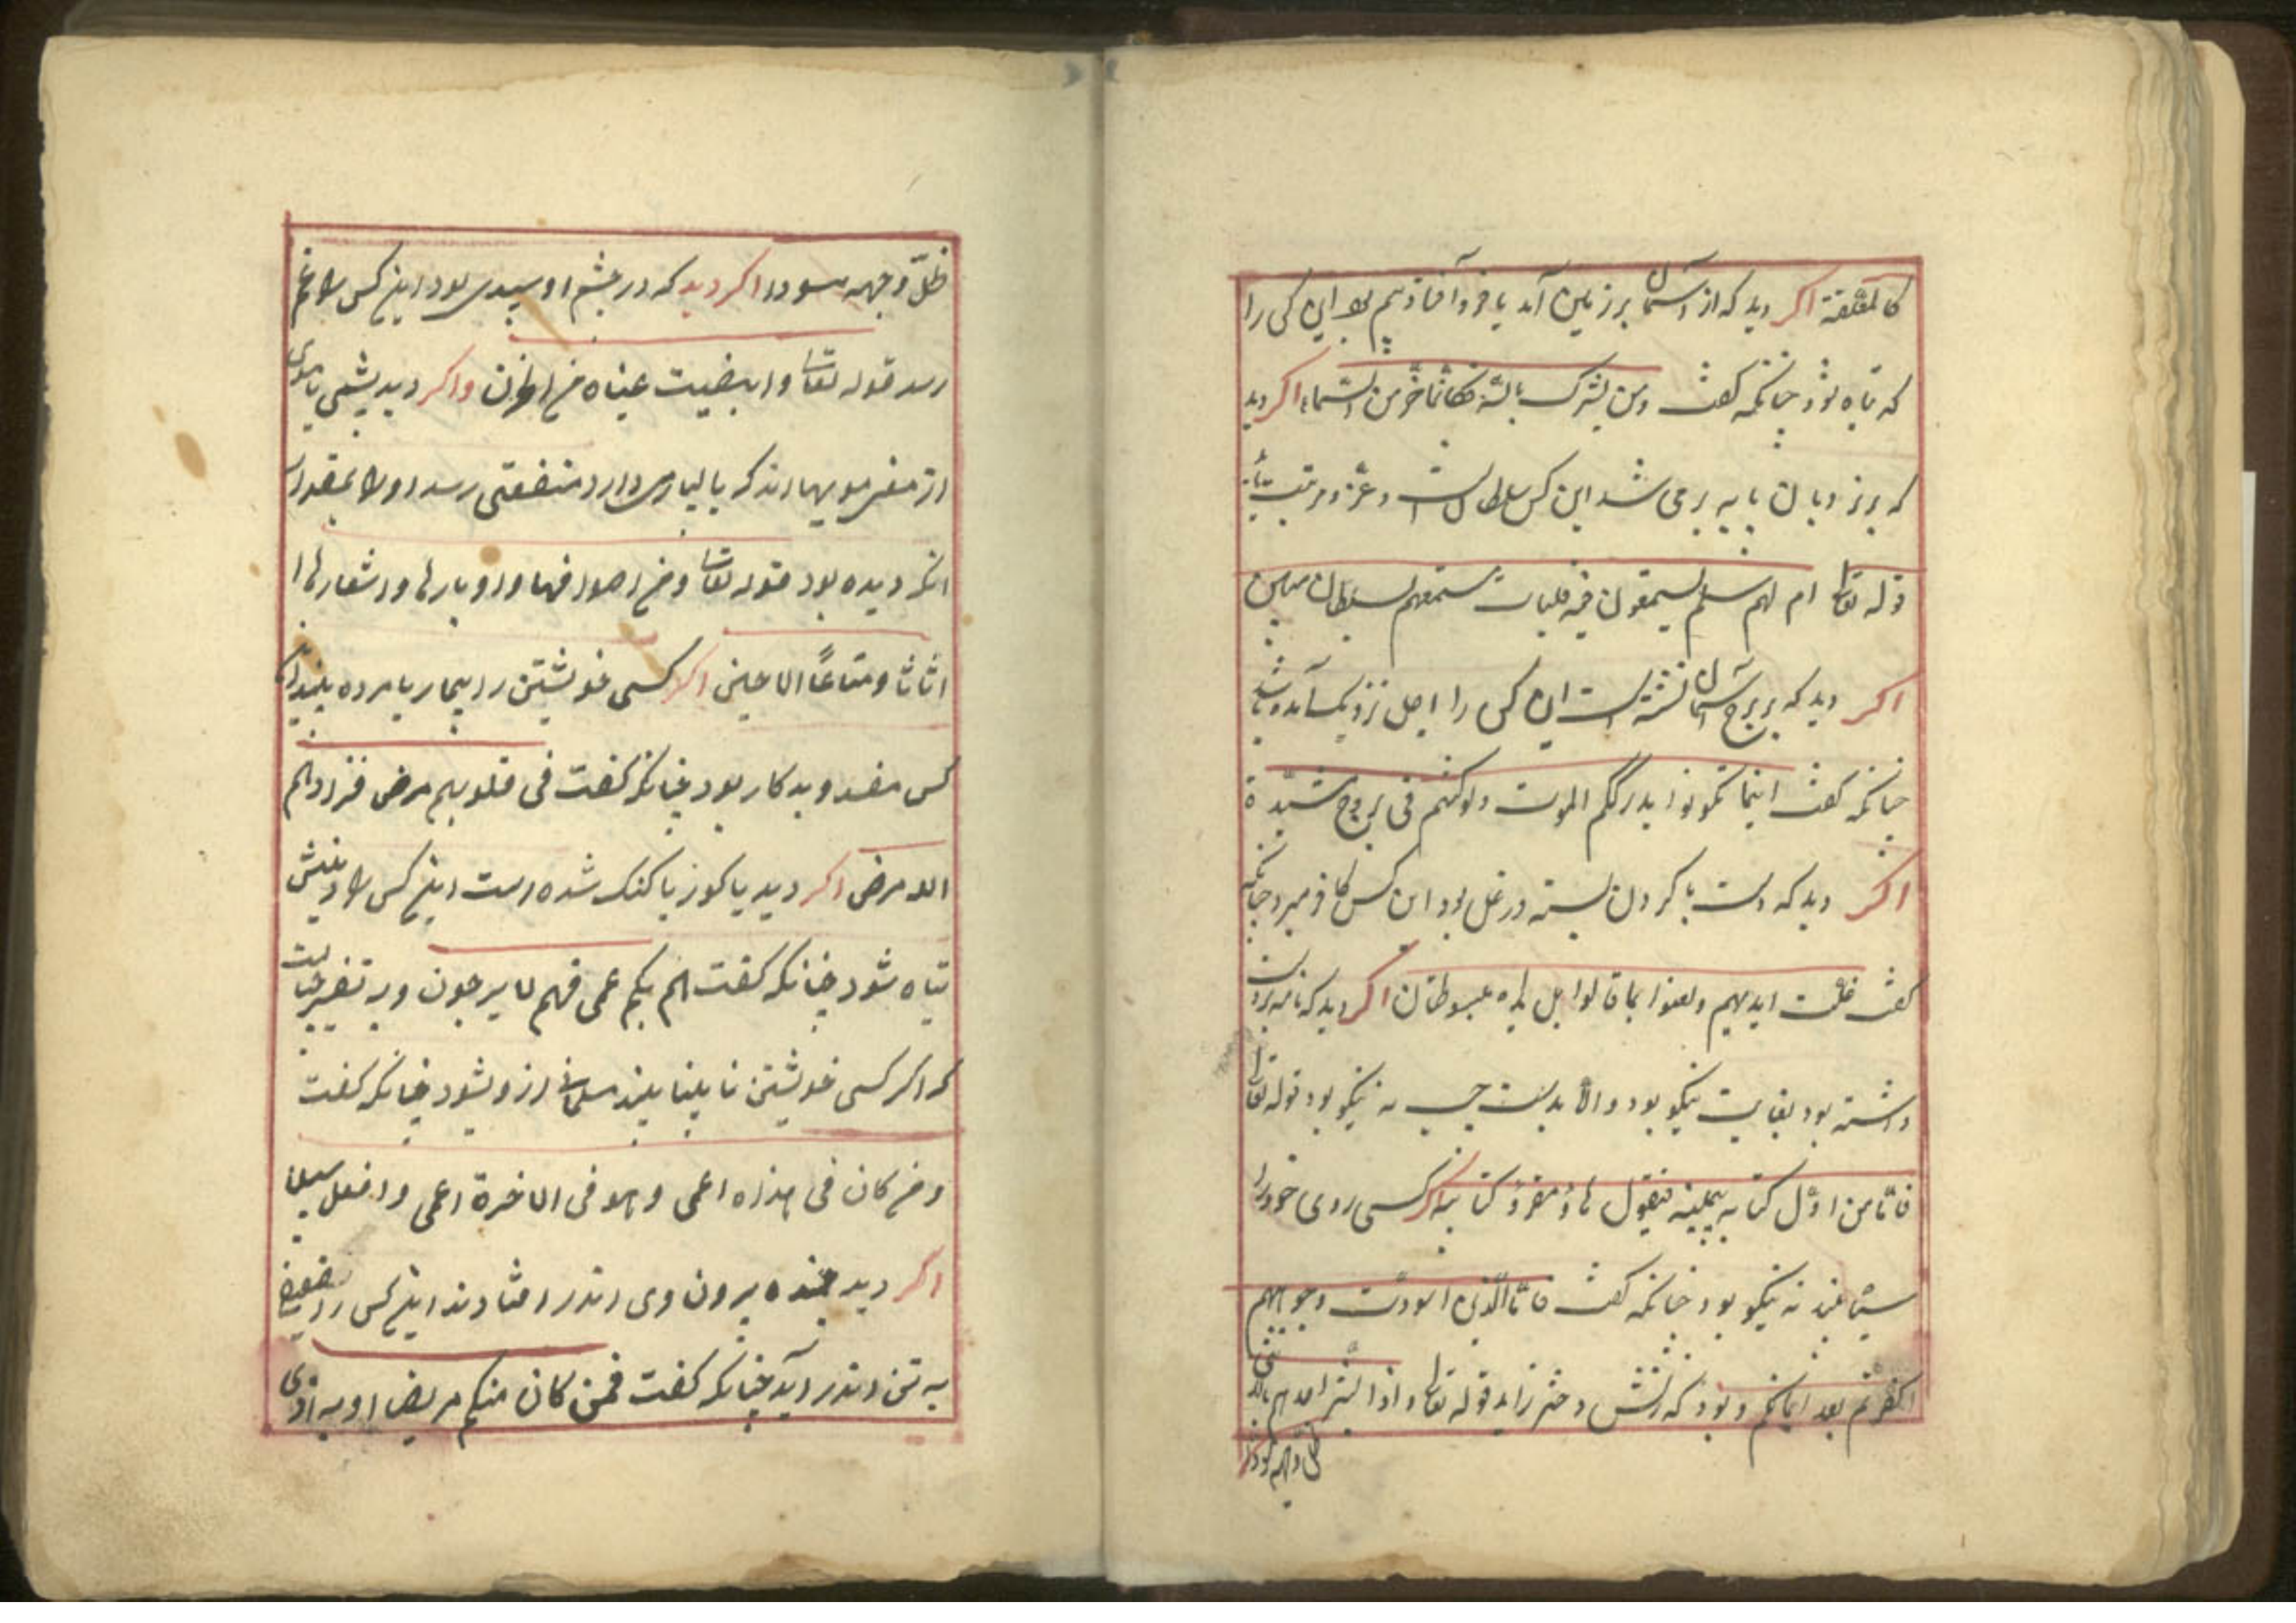 کالمعلقة اکر دید که از آسمان بر زمین آمد یا فرو آفتاد بیم بود این کس را
که تباه شود چنانکه کفت ومن یشرک بالله فکانما خر من السماء اکر دید
که بر نردبان پایه بر می شد این کس سلطان است و عز و مرتبت یابد
قوله تعا ام لهم سلم یستمعون فیه فلیات مستمعهم بسلطان مبین
اکر دید که بر برج آسمان نشسته است این کس را اجل نزدیک آمده باشد
چنانکه کفت اینما تکونوا یدرککم الموت ولو کنتم فی بروج مشیدة
اکر دید که دست با کردن بسته در غل بود این کس کافر میرد چنانکه
کفت غلت ایدیهم ولعنوا بما قالوا بل یداه مبسوطتان اکر دید که نامه بر دست
داشته بود بغایت نیکو بود و الا بدست چپ نه نیکو بود قوله تعا
فاما من اوتی کتابه بیمینه فیقول هاؤم اقرؤ کتابیه اکر کسی روی خود را
سیاه بیند نه نیکو بود چنانکه کفت فاما الذین اسودت وجوههم
اکفرتم بعد ایمانکم و بود که زنش دختر زاید قوله تعا واذا بشر احدهم بالانثی
ظل وجهه مسودا
ظل وجهه مسودا اکر دید که در چشم او سپیدی بود این کس را غم
رسد قوله تعا وابیضت عیناه من الحزن واکر دید پشمی یا موی
از مویها اندک یا بسیاری دارد منفعتی رسد او را بمقدار
انکه دیده بود قوله تعا ومن اصوافها واوبارها واشعارها
اثاثا ومتاعًا الی حین اکر کسی خویشتن را بیمار یا مرده بیند آن
کس مفسد و بدکار بود چنانکه کفت فی قلوبهم مرض فزادهم
الله مرض اکر دید یا کور یا کنک شده است این کس را دینش
تباه شود چنانکه کفت صم بکم عمی فهم لا یرجعون و به تفسیر چنانست
که اکر کسی خویشتن نابینا بیند مسلمانی ازو بشود چنانکه کفت
ومن کان فی هذه اعمی وهو فی الاخرة اعمی واضل سبیلا
اکر دید برون وی اندر افتادند این کس را ضعیفی
به تن اندر آید چنانکه کفت فمن کان منکم مریضا او به اذی